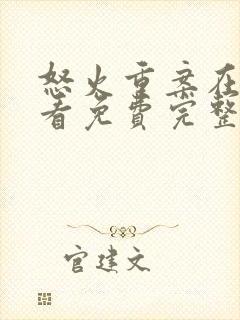 怒火重案在
看免费完整
官建文